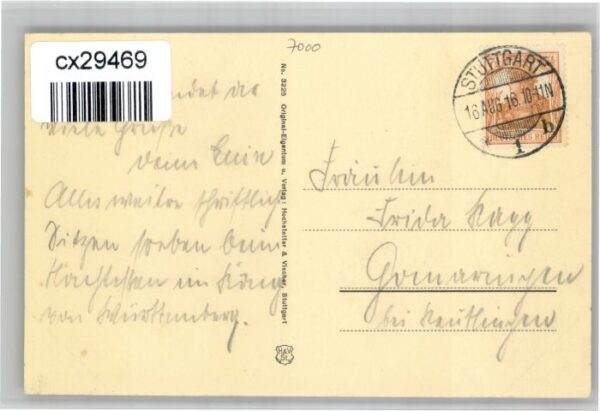 cx29469
7000
viele Grüße
deine
Alles weitere schriftlich
Sitzen soeben beim
Nachtessen im König
von Württemberg.
No. 3225 Original-Eigentum u. Verlag: Hochstetter & Vischer, Stuttgart
STUTTGART
16 AUG 16 10-11N
1 b
Fräulein
Frida
Gomaringen
bei Reutlingen